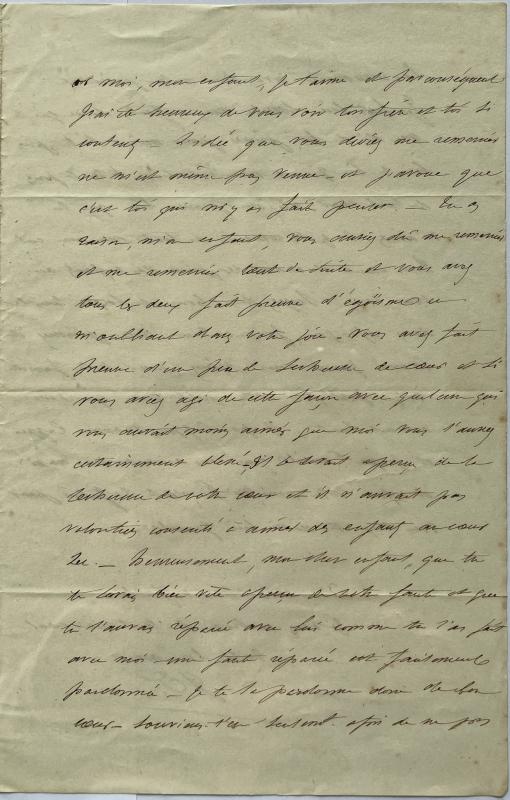 moi, mon enfant, je t'aime et par conséquent
j'ai été heureux de vous voir ton frère et toi si
contents – L'idée que vous deviez me remercier
ne m'est même pas venue – et j'avoue que
c'est toi qui m'y as fait penser – Tu as
raison, mon enfant, vous auriez dû me remercier
et me remercier tout de suite et vous avez
tous les deux fait preuve d'égoïsme en
m'oubliant dans votre joie – Vous avez fait
preuve d'un peu de sécheresse de cœur et si
vous aviez agi de cette façon avec quelqu'un qui
vous aurait moins aimés que moi vous l'auriez
certainement blessé – Il se serait aperçu de la
sécheresse de votre cœur et il n'aurait pas
volontiers consenti à aimer des enfants au cœur
sec. – Heureusement, mon cher enfant, que tu
te serais bien vite aperçu de votre faute et que
tu l'aurais réparée avec lui comme tu l'as fait
avec moi – une faute réparée est facilement
pardonnée – Je te la pardonne donc de bon
cœur – souviens t'en surtout afin de ne pas